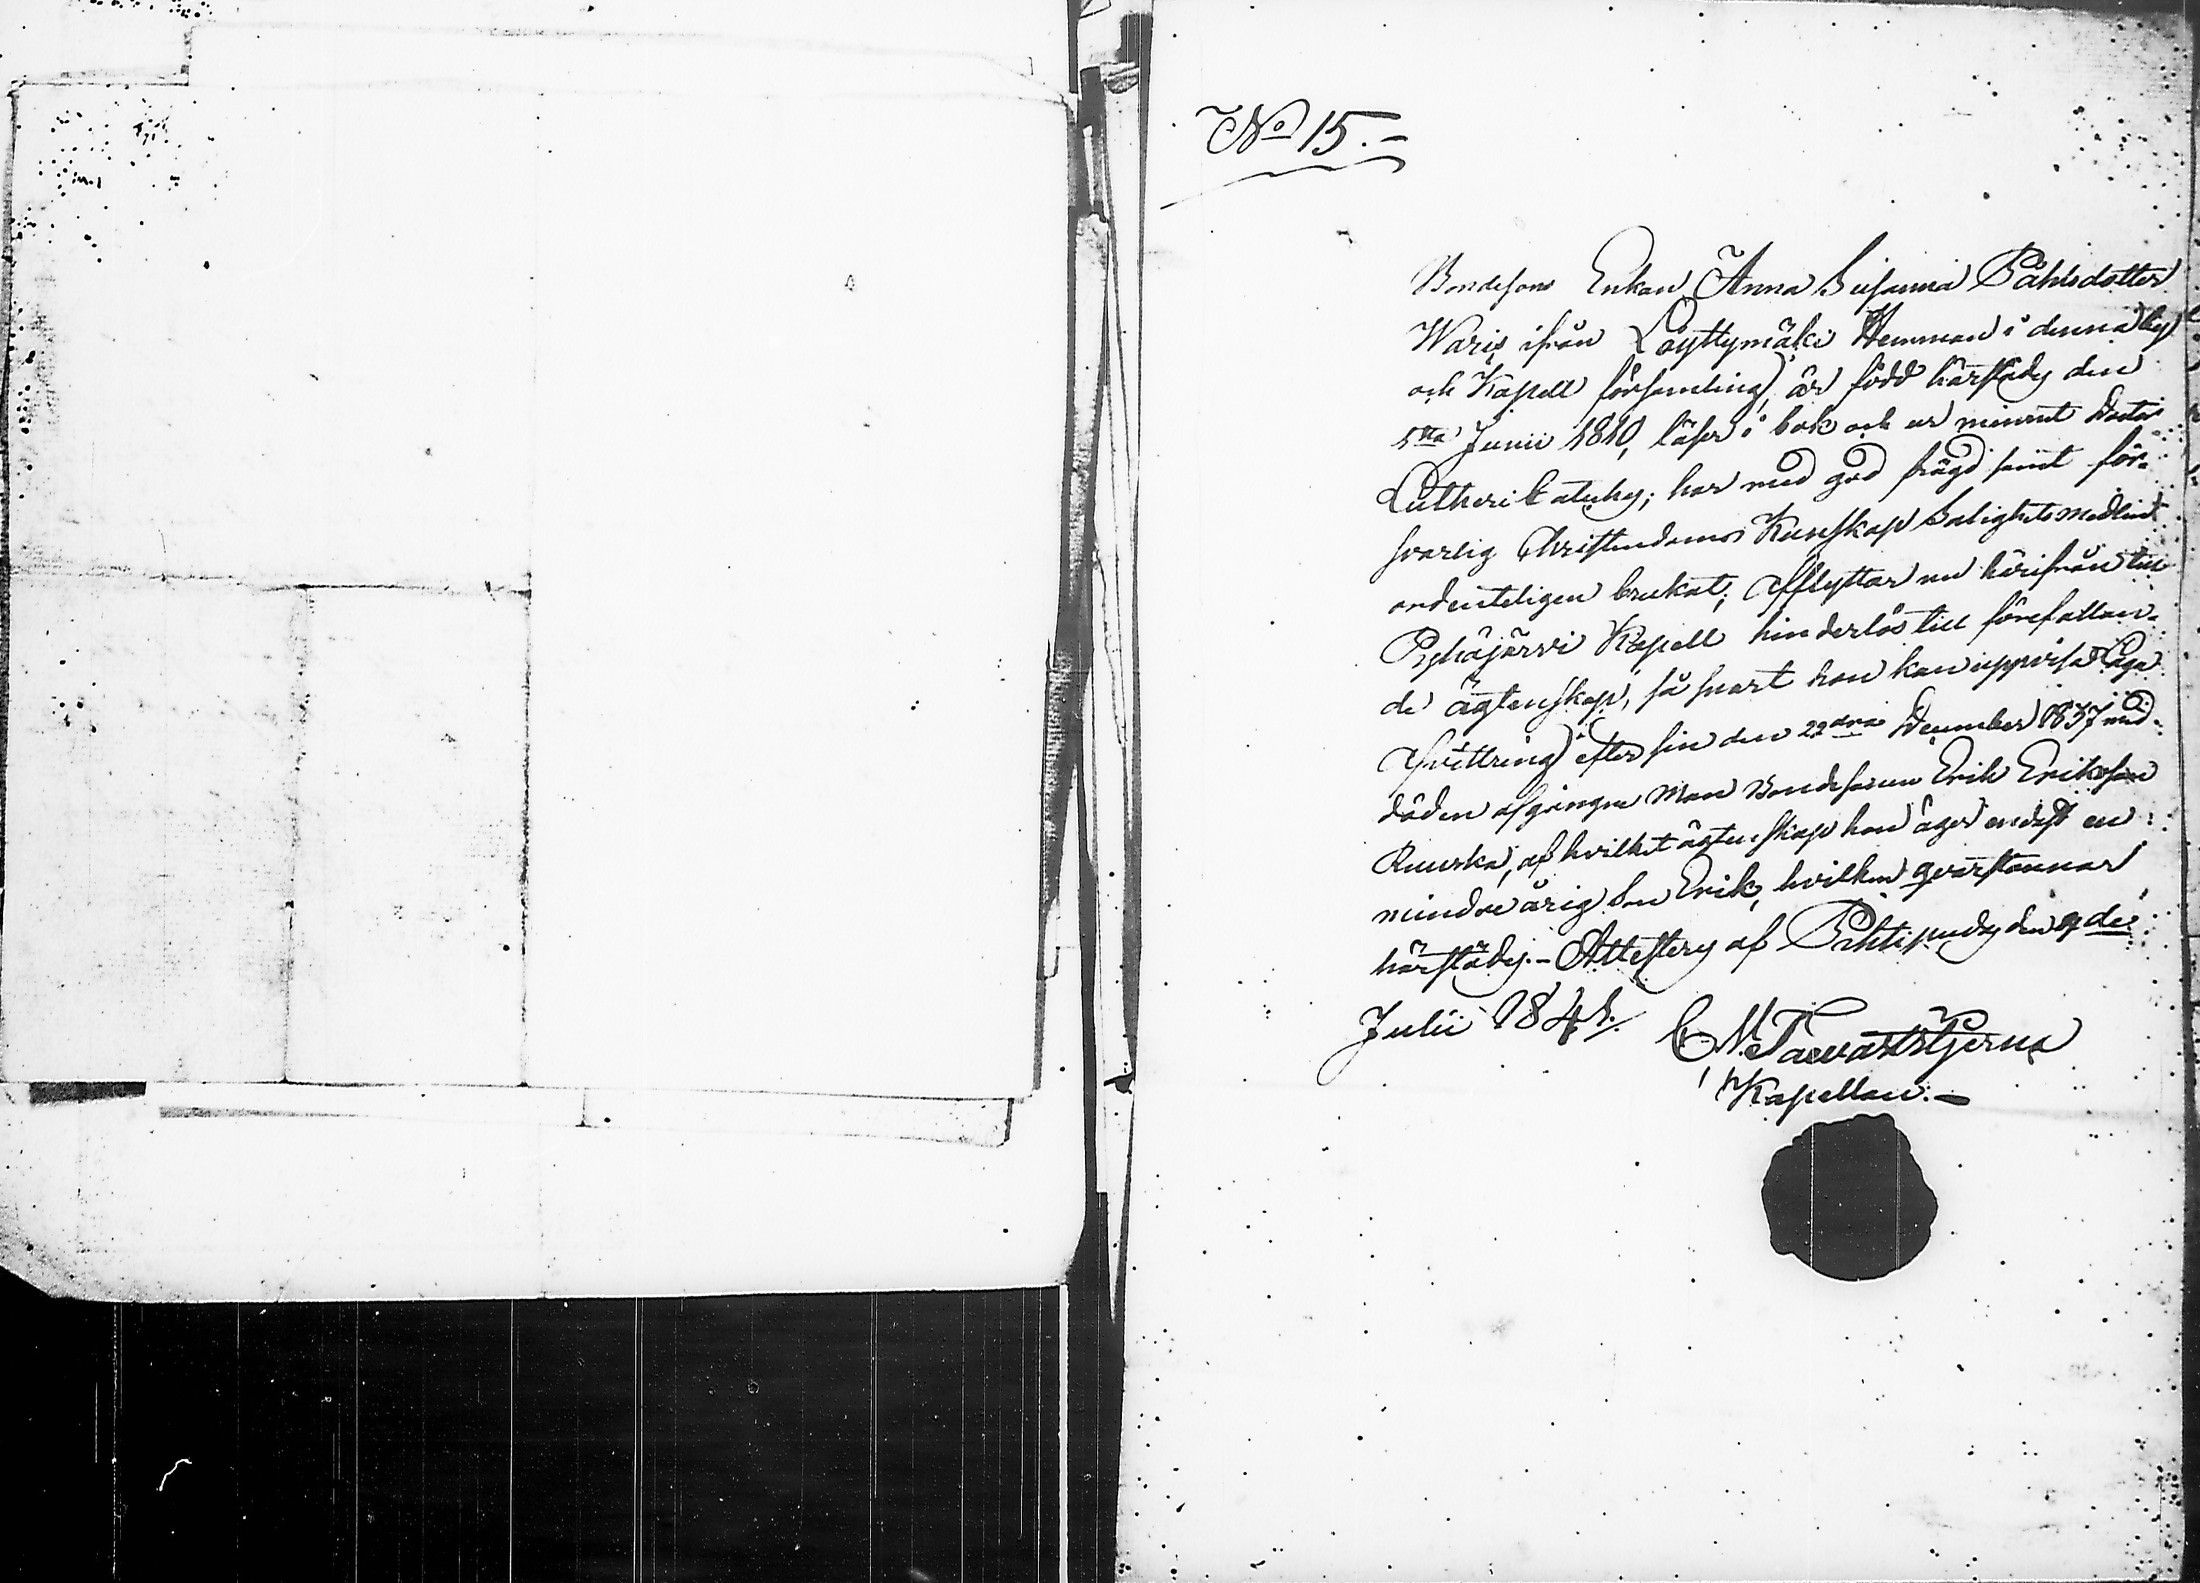 No 15.-
Bondesons Enkan Anna Susanna Påhlsdotter
Waris ifrån Löyttymäki Hemman i denna by
och Kapell församling, är född härstädes den
5ta Junii 1810, läser i bok och ur minnet Doctor
Lutheri Cateches; har med god frägd samt för-
svarlig Christendoms Kunskap Salighetsmedlen
ordenteligen brukat; afflyttar nu härifrån till
Pyhäjärvi Kapell hinderlös till förefallan-
de ägtenskap, så snart hon kan uppvisa Laga
Afvittring efter sin den 22dra December 1837 med
döden afgångne Man Bondesonen Erik Eriksson
Ruuska, af hvilket ägtenskap hon äger endast en
mindre årig Son Erik, hvilken qvarstannar
härstädes.- Attesteras af Pihtipudas den 9de
Julii 1841.
C. M. Tawaststjerna
Kapellan.-